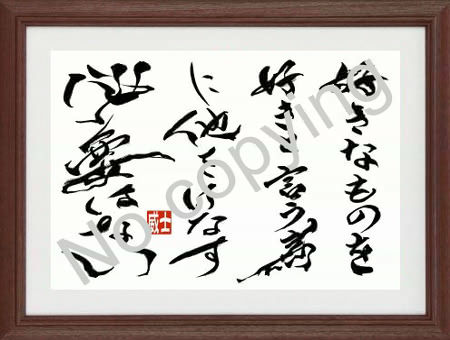 好きなものを
好きと言う為
に他をけなす
必要はない
No copying